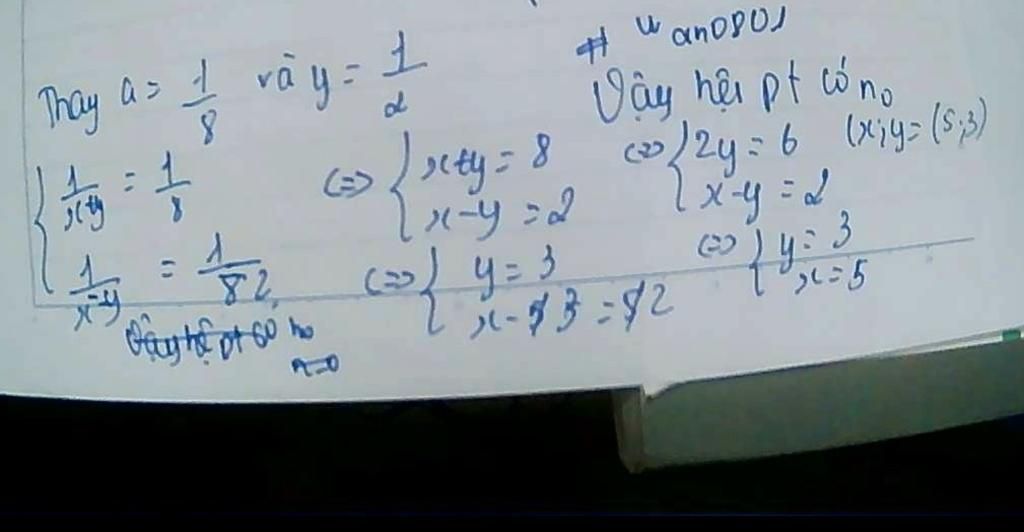 # wan0801
Thay a = 1/8 và y = 1/2
{ 1/(x+y) = 1/8
1/(x-y) = 1/2
<=> { x+y = 8
x-y = 2
<=> { 2y = 6
x-y = 2
<=> { y = 3
x - 3 = 2
<=> { y = 3
x = 5
Vậy hệ pt có n0
(x;y = (5;3)